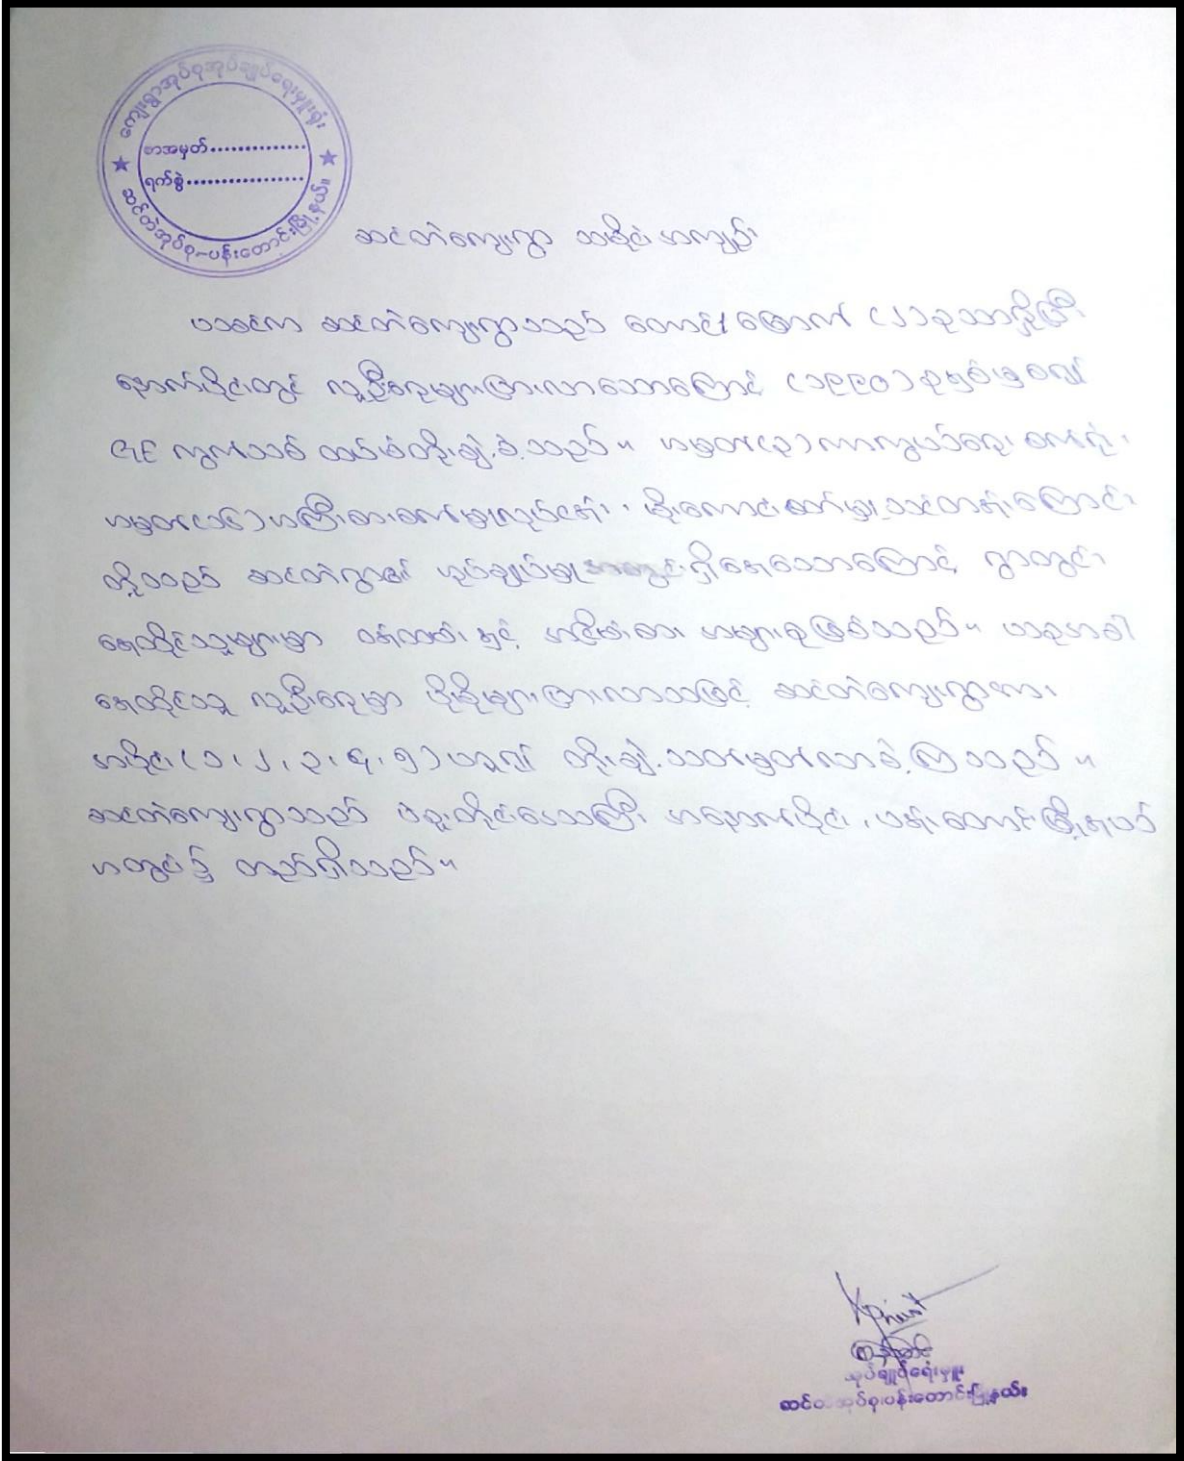 ကျေးရွာအုပ်စုအုပ်ချုပ်ရေးမှူးရုံး
စာအမှတ်..............
ရက်စွဲ..................
ဆင်တဲအုပ်စု-ပန်းတောင်းမြို့နယ်။
ဆင်တဲကျေးရွာ သမိုင်းအကျဉ်း
ယခင်က ဆင်တဲကျေးရွာသည် တောင်/မြောက် (၂)ခုသာရှိပြီး
နောက်ပိုင်းတွင် လူဦးရေများပြားလာသောကြောင့် (၁၉၉၀)ခုနှစ်
ကွက်သစ် ထပ်မံတိုးချဲ့ခဲ့သည်။ အမှတ်(၃)ကာကွယ်ရေး စက်ရုံ၊
အမှတ်(၁၆)အကြီးစားစက်မှုလုပ်ငန်း၊
တို့သည် ဆင်တဲရွာ၏ အုပ်ချုပ်မှုအတွင်းရှိနေသောကြောင့် ရွာတွင်း
နေထိုင်သူများမှာ ဝန်ထမ်း နှင့် အငြိမ်းစား အများစုဖြစ်သည်။ ယခုအခါ
နေထိုင်သူ လူဦးရေမှာ ပိုမိုများပြားလာသဖြင့် ဆင်တဲကျေးရွာအား
အပိုင်း(၁၊ ၂၊ ၃၊ ၄၊ ၅)ဟူ၍ တိုးချဲ့သတ်မှတ်လာခဲ့ကြသည်။
ဆင်တဲကျေးရွာသည် ပဲခူးတိုင်းဒေသကြီး အနောက်ပိုင်း၊ ပန်းတောင်းမြို့နယ်
အတွင်း၌ တည်ရှိသည်။
အုပ်ချုပ်ရေးမှူး
ဆင်တဲအုပ်စု၊ပန်းတောင်းမြို့နယ်။